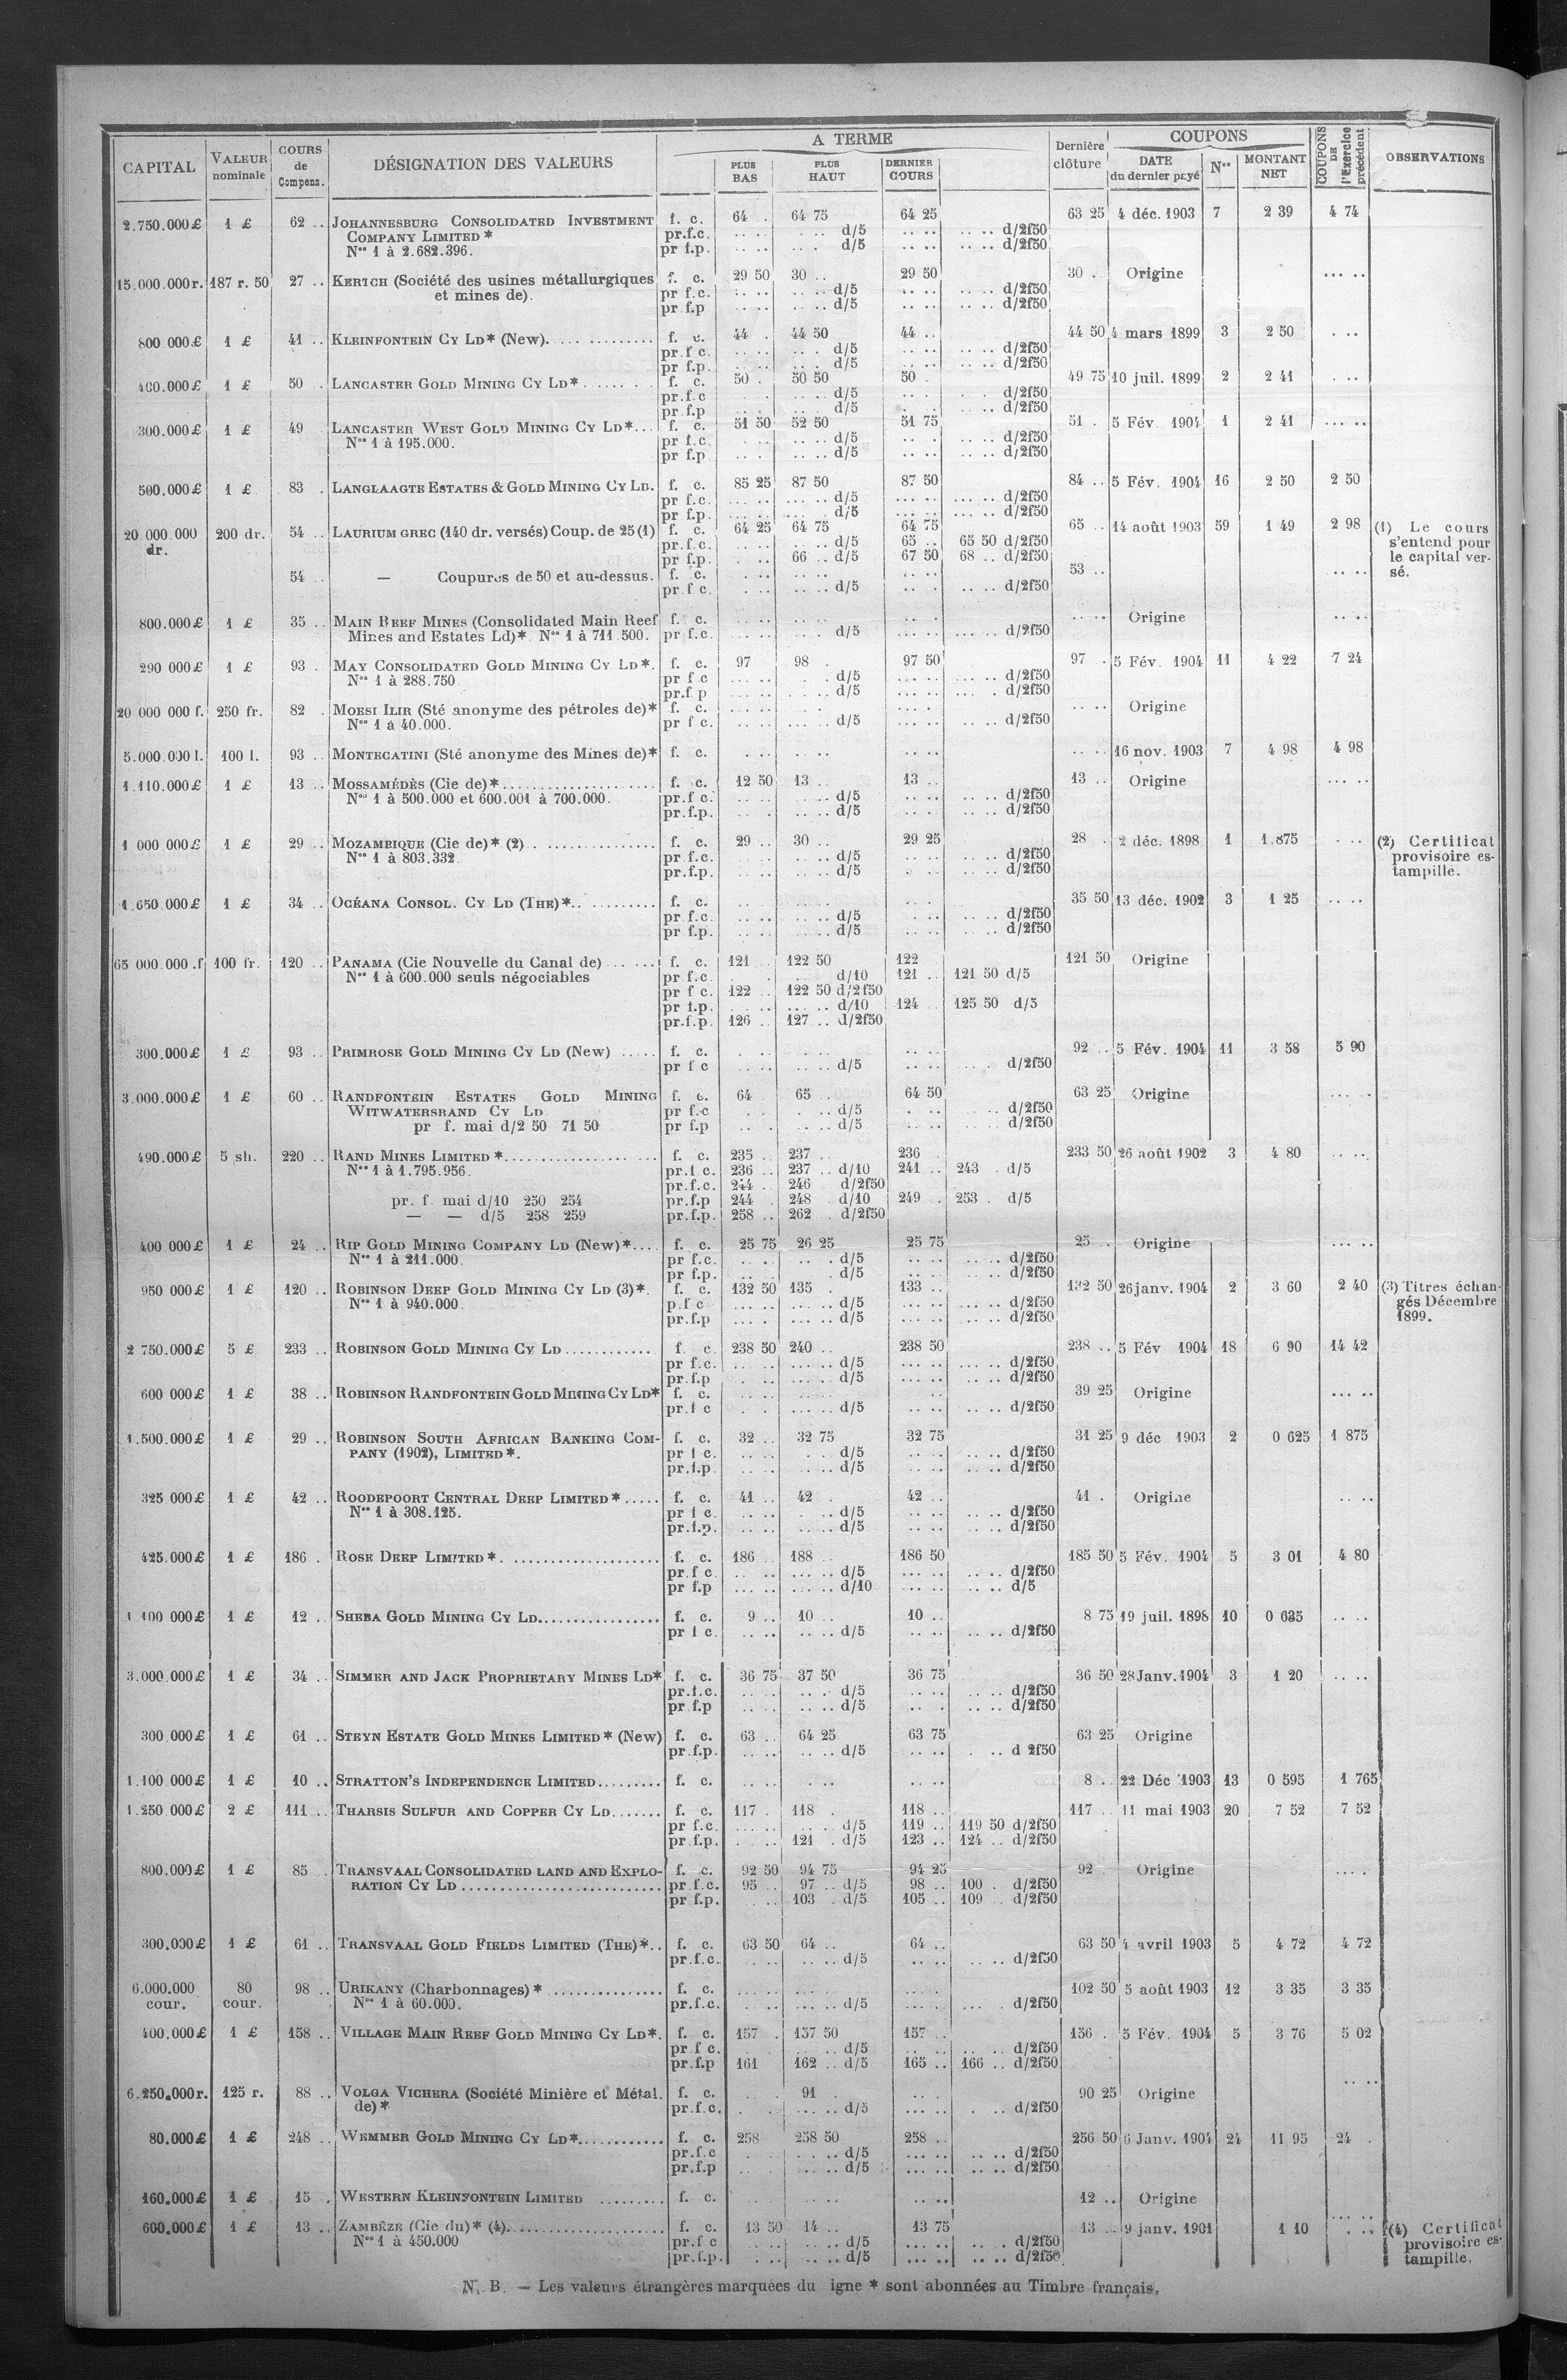 A TERME
COUPONS
CAPITAL VALEUR nominale COURS de Compens. DÉSIGNATION DES VALEURS PLUS BAS PLUS HAUT DERNIER COURS Dernière clôture DATE du dernier payé Nos MONTANT NET COUPONS DE l'Exercice précédent OBSERVATIONS
2.750.000£ 1 £ 62 .. JOHANNESBURG CONSOLIDATED INVESTMENT f. c. 64 .. 64 75 64 25 63 25 4 déc. 1903 7 2 39 4 74
COMPANY LIMITED * pr.f.c. .. .. .. . d/5 .. .. .. .. d/2f50
Nos 1 à 2.682.396. pr f.p. .. .. .. . d/5 .. .. .. .. d/2f50
15.000.000r. 187 r. 50 27 .. KERTCH (Société des usines métallurgiques f. c. 29 50 30 .. 29 50 30 . Origine ... ..
et mines de). pr f.c. .. .. .. .. d/5 .. .. .. .. d/2f50
pr f.p .. .. .. .. d/5 .. .. .. .. d/2f50
800 000£ 1 £ 41 .. KLEINFONTEIN CY LD* (New). f. c. 44 . 44 50 44 .. 44 50 4 mars 1899 3 2 50 . ..
pr.f c. .. .. .. . d/5 .. .. .. .. d/2f50
pr f.p. .. .. .. . d/5 .. .. .. .. d/2f50
400.000£ 1 £ 50 .. LANCASTER GOLD MINING CY LD* f. c. 50 . 50 50 50 . 49 75 10 juil. 1899 2 2 41 . ..
pr.f.c d/5 d/2f50
pr.f.p d/5 d/2f50
300.000£ 1 £ 49 LANCASTER WEST GOLD MINING CY LD*... f. c. 51 50 52 50 51 75 51 . 5 Fév. 1904 1 2 41 ... ..
Nos 1 à 195.000. pr f.c. d/5 d/2f50
pr f.p d/5 d/2f50
500.000£ 1 £ 83 . LANGLAAGTE ESTATES & GOLD MINING CY LD. f. c. 85 25 87 50 87 50 84 .. 5 Fév. 1904 16 2 50 2 50
pr f.c. d/5 d/2f50
pr f.p. d/5 d/2f50
20.000.000 200 dr. 54 .. LAURIUM GREC (140 dr. versés) Coup. de 25 (1) f. c. 64 25 64 75 64 75 65 .. 14 août 1903 59 1 49 2 98 (1) Le cours
dr. pr.f.c. .. .. d/5 65 .. 65 50 d/2f50 s'entend pour
pr f.p. 66 .. d/5 67 50 68 .. d/2f50 le capital ver-
54 .. — Coupures de 50 et au-dessus. f. c. .. .. .. .. 53 .. .. .. sé.
pr.f c. d/5 d/2f50
800.000£ 1 £ 35 .. MAIN REEF MINES (Consolidated Main Reef f. c. .. .. Origine .. ..
Mines and Estates Ld)*. Nos 1 à 711.500. pr f.c. d/5 d/2f50
290 000£ 1 £ 93 . MAY CONSOLIDATED GOLD MINING CY LD*. f. c. 97 98 . 97 50 97 . 5 Fév. 1904 11 4 22 7 24
Nos 1 à 288.750 pr f c d/5 d/2f50
pr.f p d/5 d/2f50
20 000 000 f. 250 fr. 82 . MOESI ILIR (Sté anonyme des pétroles de)* f. c. .. .. Origine
Nos 1 à 40.000. pr f c. d/5 d/2f50
5.000.000 l. 100 l. 93 .. MONTECATINI (Sté anonyme des Mines de)* f. c. .. .. 16 nov. 1903 7 4 98 4 98
1.110.000£ 1 £ 13 .. MOSSAMÉDÈS (Cie de)* f. c. 12 50 13 .. 13 .. 13 .. Origine ... ..
Nos 1 à 500.000 et 600.001 à 700.000. pr.f c. d/5 d/2f50
pr.f.p. d/5 d/2f50
1 000 000£ 1 £ 29 .. MOZAMBIQUE (Cie de)* (2) f. c. 29 .. 30 .. 29 25 28 . 2 déc. 1898 1 1.875 . .. (2) Certificat
Nos 1 à 803.332 pr f.c. d/5 d/2f50 provisoire es-
pr.f.p. d/5 d/2f50 tampillé.
1.650.000£ 1 £ 34 .. OCÉANA CONSOL. CY LD (THE)* f. c. 35 50 13 déc. 1902 3 1 25 .. ..
pr f.c. d/5 d/2f50
pr f.p. d/5 d/2f50
65 000.000.f 100 fr. 120 .. PANAMA (Cie Nouvelle du Canal de) f. c. 121 122 50 122 121 50 Origine
Nos 1 à 600.000 seuls négociables pr f.c. d/10 121 .. 121 50 d/5
pr f c. 122 .. 122 50 d/2f50
pr f.p. d/10 124 .. 125 50 d/5
pr.f.p. 126 .. 127 .. d/2f50
300.000£ 1 £ 93 .. PRIMROSE GOLD MINING CY LD (New) ..... f. c. 92 .. 5 Fév. 1904 11 3 58 5 90
pr f c d/5 d/2f50
3.000.000£ 1 £ 60 .. RANDFONTEIN ESTATES GOLD MINING f. c. 64 65 .. 64 50 63 25 Origine
WITWATERSRAND CY LD pr f.c d/5 d/2f50
pr f. mai d/2 50 71 50 pr f.p d/5 d/2f50
490.000£ 5 sh. 220 .. RAND MINES LIMITED * f. c. 235 .. 237 .. 236 233 50 26 août 1902 3 4 80 .. ..
Nos 1 à 1.795.956. pr.f c. 236 .. 237 .. d/10 241 .. 243 . d/5
pr.f.c. 244 .. 246 d/2f50
pr. f. mai d/10 250 254 pr.f.p 244 . 248 . d/10 249 .. 253 . d/5
— — d/5 258 259 pr.f.p. 258 .. 262 . d/2f50
400 000£ 1 £ 24 .. RIP GOLD MINING COMPANY LD (New)*.... f. c. 25 75 26 25 25 75 25 .. Origine ... ..
Nos 1 à 211.000. pr f.c. d/5 d/2f50
pr f.p. d/5 d/2f50
950 000£ 1 £ 120 .. ROBINSON DEEP GOLD MINING CY LD (3)*. f. c. 132 50 135 . 133 .. 132 50 26 janv. 1904 2 3 60 2 40 (3) Titres échan-
Nos 1 à 940.000. p.f c d/5 d/2f50 gés Décembre
pr.f.p d/5 d/2f50 1899.
2 750.000£ 5 £ 233 .. ROBINSON GOLD MINING CY LD f c. 238 50 240 .. 238 50 238 .. 5 Fév 1904 18 6 90 14 42
pr f.c. d/5 d/2f50
pr.f.p d/5 d/2f50
600 000£ 1 £ 38 .. ROBINSON RANDFONTEIN GOLD MINING CY LD* f. c. 39 25 Origine ... ..
pr.f c d/5 d/2f50
1.500.000£ 1 £ 29 .. ROBINSON SOUTH AFRICAN BANKING COM- f. c. 32 .. 32 75 32 75 31 25 9 déc 1903 2 0 625 1 875
PANY (1902), LIMITED *. pr f c. d/5 d/2f50
pr.f.p. d/5 d/2f50
325 000£ 1 £ 42 .. ROODEPOORT CENTRAL DEEP LIMITED *..... f. c. 41 .. 42 . 42 .. 41 . Origine .. ..
Nos 1 à 308.125. pr f c. d/5 d/2f50
pr.f.p. d/5 d/2f50
425.000£ 1 £ 186 . ROSE DEEP LIMITED *. f. c. 186 .. 188 .. 186 50 185 50 5 Fév. 1904 5 3 01 4 80
pr.f c. d/5 d/2f50
pr f.p d/10 d/5
1 100 000£ 1 £ 12 .. SHEBA GOLD MINING CY LD f. c. 9 .. 10 .. 10 .. 8 75 19 juil. 1898 10 0 635 .. ..
pr f c. d/5 d/2f50
3.000.000£ 1 £ 34 .. SIMMER AND JACK PROPRIETARY MINES LD* f. c. 36 75 37 50 36 75 36 50 28 Janv. 1904 3 1 20 .. ..
pr.f.c. d/5 d/2f50
pr f.p d/5 d/2f50
300.000£ 1 £ 61 .. STEYN ESTATE GOLD MINES LIMITED * (New) f. c. 63 .. 64 25 63 75 63 25 Origine
pr.f.p. d/5 d 2f50
1.100 000£ 1 £ 10 .. STRATTON'S INDEPENDENCE LIMITED f. c. 8 .. 22 Déc 1903 13 0 595 1 765
1.250 000£ 2 £ 111 .. THARSIS SULFUR AND COPPER CY LD f. c. 117 . 118 . 118 .. 117 .. 11 mai 1903 20 7 52 7 52
pr f.c. d/5 119 .. 119 50 d/2f50
pr.f.p. 121 . d/5 123 .. 124 .. d/2f50
800.000£ 1 £ 85 . TRANSVAAL CONSOLIDATED LAND AND EXPLO- f. c. 92 50 94 75 94 25 92 . Origine
RATION CY LD pr f.c. 95 .. 97 .. d/5 98 .. 100 . d/2f50
pr f.p. 103 . d/5 105 .. 109 .. d/2f50
300.000£ 1 £ 61 .. TRANSVAAL GOLD FIELDS LIMITED (THE)*.. f. c. 63 50 64 .. 64 .. 63 50 4 avril 1903 5 4 72 4 72
pr.f.c. d/5 d/2f50
6.000.000 80 98 .. URIKANY (Charbonnages) * f. c. 102 50 5 août 1903 12 3 35 3 35
cour. cour. Nos 1 à 60.000. pr.f.c. d/5 d/2f50
400.000£ 1 £ 158 .. VILLAGE MAIN REEF GOLD MINING CY LD*. f. c. 157 . 157 50 157 .. 156 . 5 Fév. 1904 5 3 76 5 02
pr f c. d/5 d/2f50
pr.f.p 161 162 .. d/5 165 .. 166 .. d/2f50
6.250.000r. 125 r. 88 .. VOLGA VICHERA (Société Minière et Métal. f. c. 91 . 90 25 Origine
de)* pr.f.c. d/5 d/2f50
80.000£ 1 £ 248 .. WEMMER GOLD MINING CY LD* f. c. 258 258 50 258 .. 256 50 6 Janv. 1904 24 11 95 24 .
pr.f.c d/5 d/2f50
pr.f.p d/5 d/2f50
160.000£ 1 £ 15 . WESTERN KLEINFONTEIN LIMITED f. c. 12 .. Origine
600.000£ 1 £ 13 .. ZAMBÈZE (Cie du)* (4) f. c. 13 50 14 .. 13 75 13 .. 9 janv. 1901 1 10 . .. (4) Certificat
Nos 1 à 450.000 pr.f c d/5 d/2f50 provisoire es-
pr.f.p. d/5 d/2f50 tampillé.
N. B. — Les valeurs étrangères marquées du igne * sont abonnées au Timbre français.